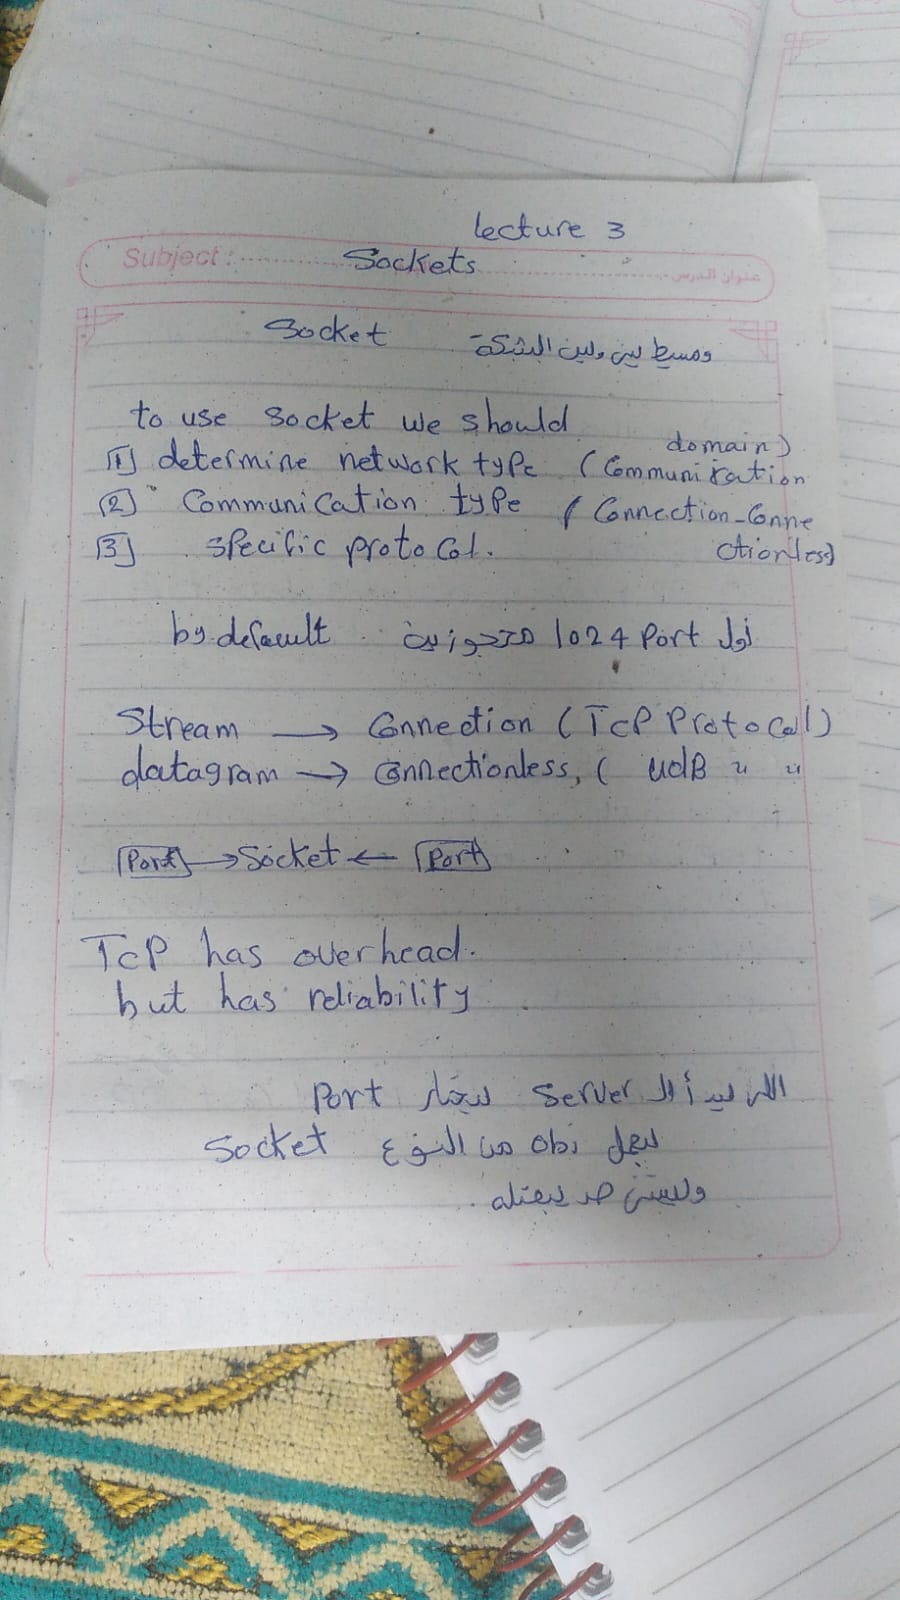 Lecture 3
Subject: Sockets عنوان الدرس
Socket وسيط بيني وبين الشبكة
to use socket we should
[1] determine network type (Communication domain)
[2] Communication type (Connection-Conne
ctionless)
[3] specific protocol.
by default أول 1024 Port محجوزين
Stream → Connection (TCP Protocol)
datagram → Connectionless, ( UdB " "
Port → Socket ← Port
TCP has overhead.
but has reliability
اللي يبدأ ال Server يختار Port
يعمل obj من النوع Socket
ويستنى حد يبعتله